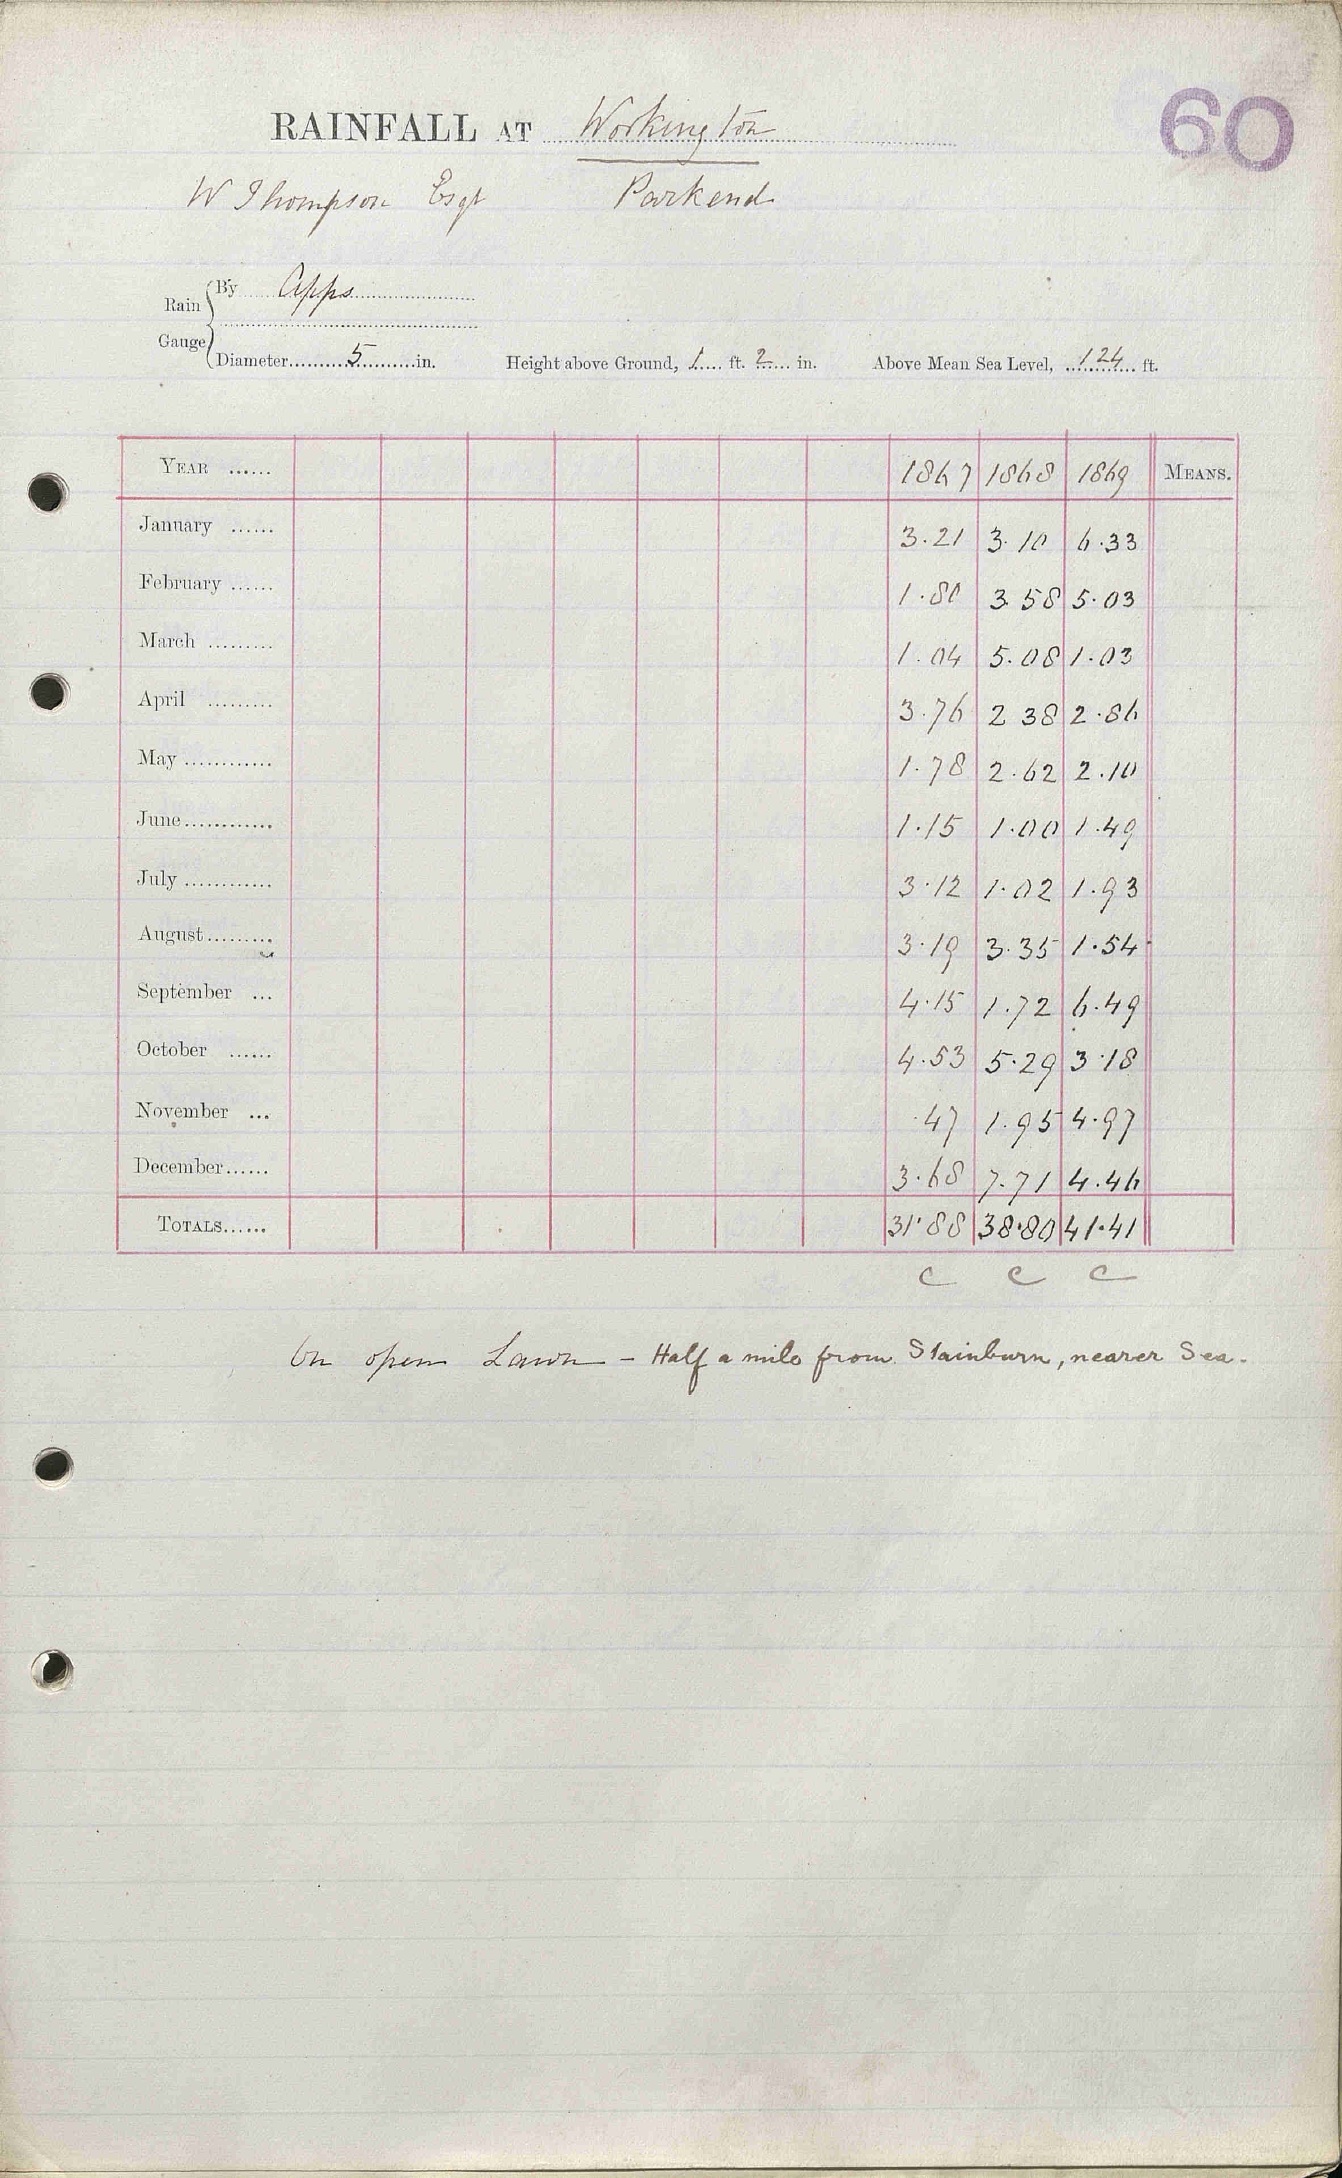 60
RAINFALL AT Workington
W Thompson Esqr Parkend
Rain Gauge By Apps
Diameter 5 in. Height above Ground, 1 ft. 2 in. Above Mean Sea Level, 124 ft.
YEAR ...... 1867 1868 1869 MEANS.
January ...... 3.21 3.10 6.33
February ...... 1.80 3.58 5.03
March ......... 1.04 5.08 1.03
April ......... 3.76 2.38 2.86
May ............ 1.78 2.62 2.10
June............ 1.15 1.00 1.49
July ............ 3.12 1.02 1.93
August......... 3.19 3.35 1.54
September ... 4.15 1.72 6.49
October ...... 4.53 5.29 3.18
November ... .47 1.95 4.97
December...... 3.68 7.71 4.46
TOTALS...... 31.88 38.80 41.41
C C C
On open Lawn - Half a mile from Stainburn, nearer Sea.